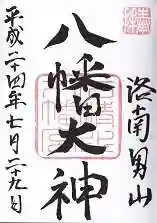 洛南男山
八幡大神
平成二十四年七月二十九日